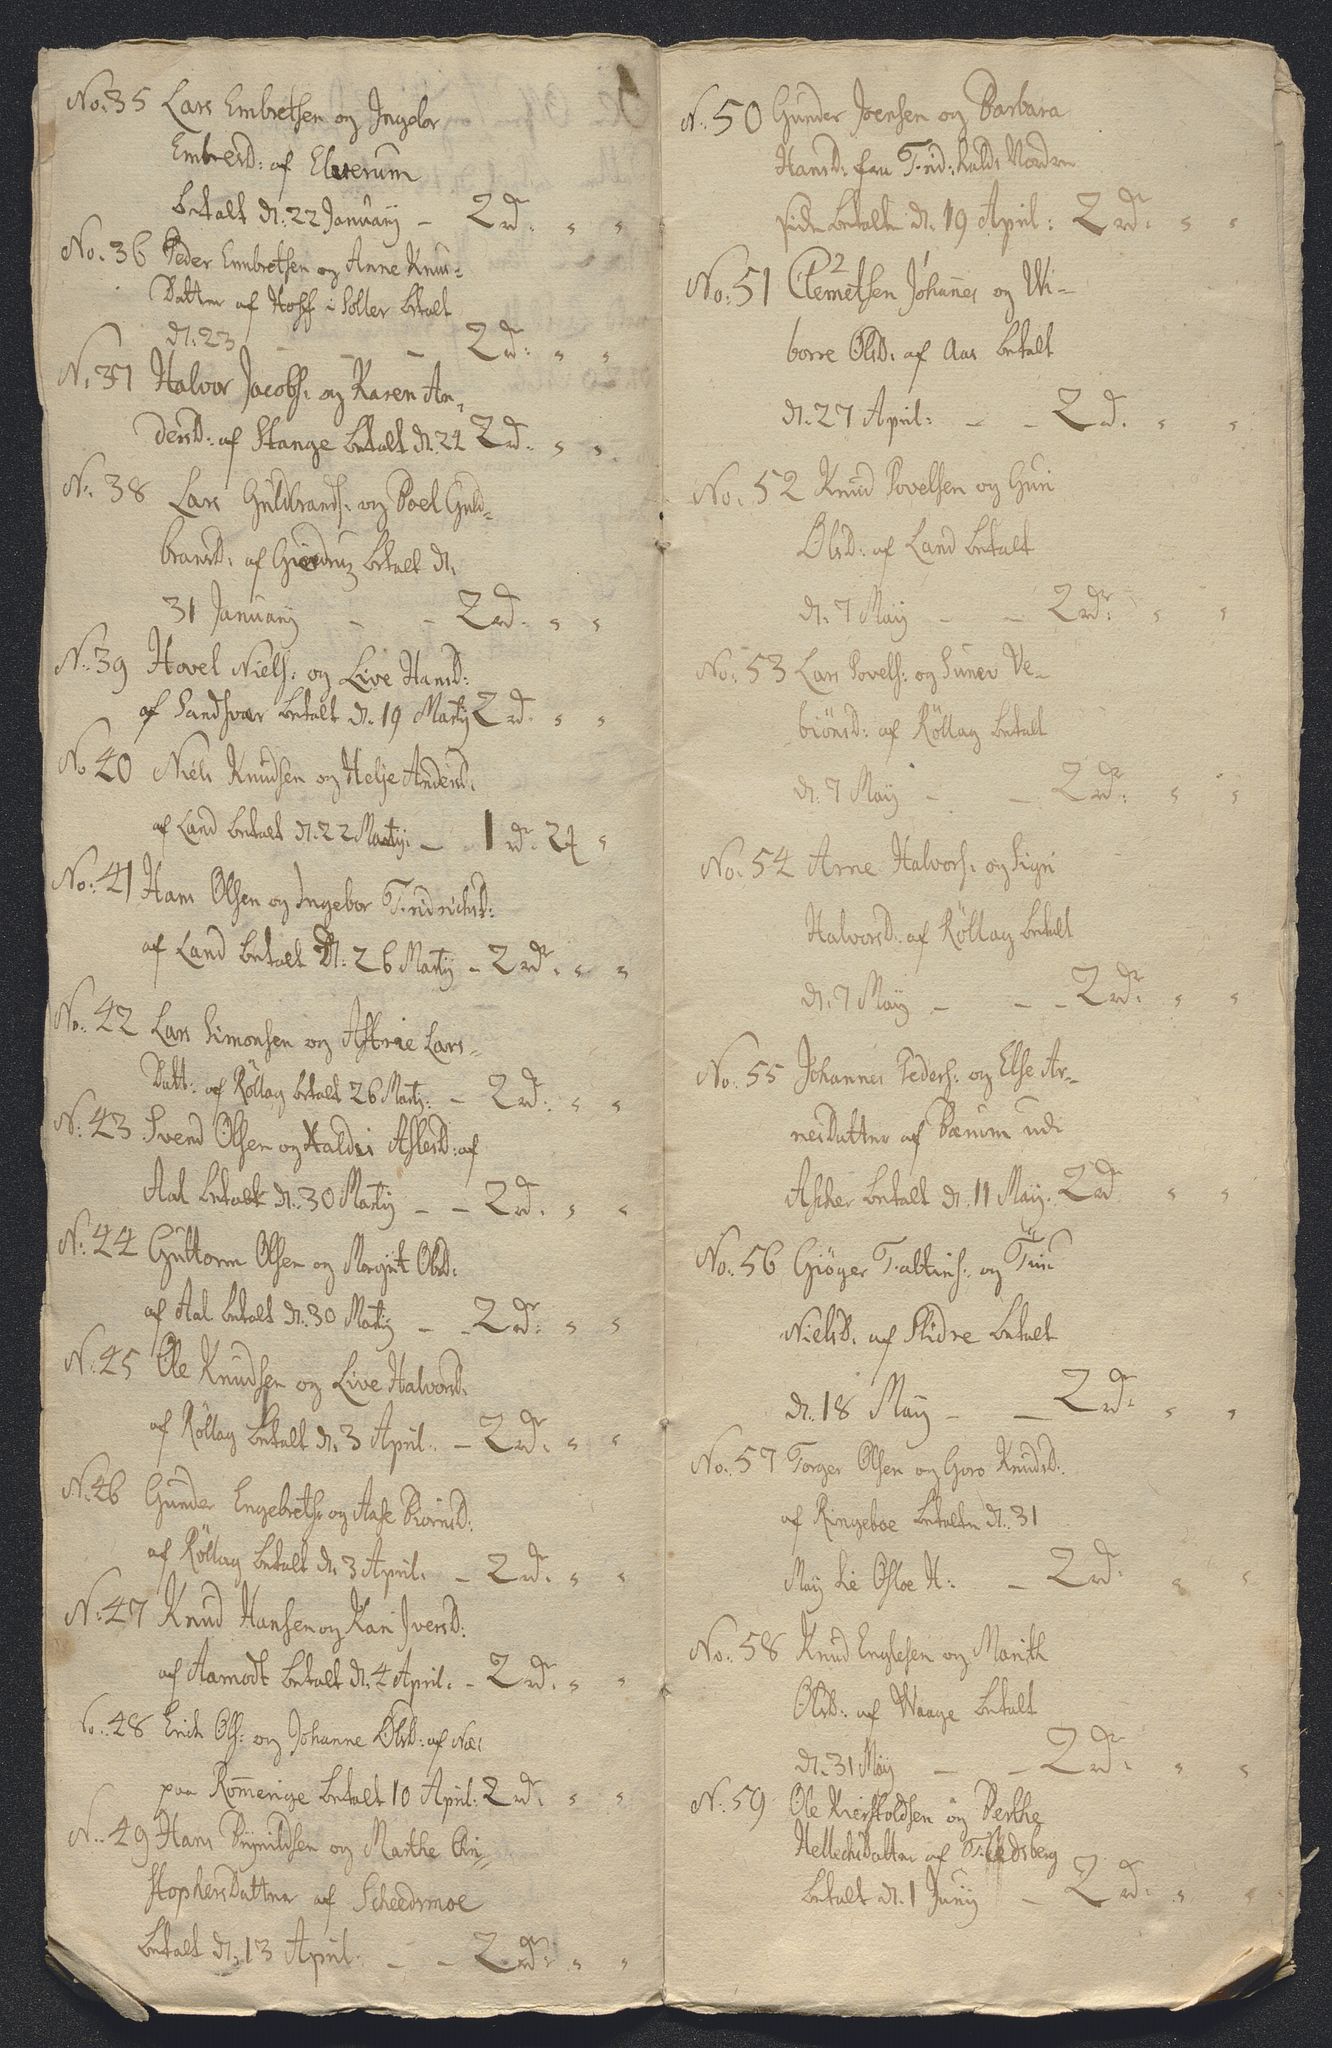 No. 35 Lars Embretsen og Ingebor
Embresd: af Elverum
betalt d. 22 January - 2 rd: " "
No. 36 Peder Embretsen og Anne Knu-
Datter af Hoff i Soller betalt
d. 23 - - - 2 rd: " "
No. 37 Halvor Jacobs: og Karen An-
dersd: af Stange betalt d. 24 2 rd: " "
No. 38 Lars Guldbrands: og Boel Guld-
bransd: af betalt d.
31 January - - 2 rd. " "
No. 39 Hovel Niels: og Live Hansd:
af Sandsvær betalt d. 19 Martij 2 rd. " "
No 40 Niels Knudsen og Helje Andersd.
af Land betalt d. 22 Martij. - 1 rd. 24 "
No: 41 Hans Olsen og Ingebor Fridrichsd:
af Land betalt d. 26 Martij - 2 rd. " "
No. 42 Lars Simonsen og Astrie Lars-
Datt: af Röllag betalt 26 Martij: - 2 rd: " "
No. 43 Svend Olsen og Haldis Aslesd: af
Aal betalt d. 30 Martij - - 2 rd. " "
No. 44 Guttorm Olsen og Margit Olsd:
af Aal betalt d. 30 Martij - - 2 rd: " "
No. 45 Ole Knudsen og Live Halvorsd.
af Röllag betalt d. 3 April. - 2 rd. " "
No. 46 Gunder Engebrets: og Aase Biörnsd:
af Röllag betalt d. 3 April. - 2 rd. " "
No. 47 Knud Hansen og Kari Iversd:
af Aamodt betalt d. 4 April. - 2 rd: " "
No. 48 Erich Ols: og Johanne Olsd: af Næs
paa Romerige betalt 10 April: 2 rd: " "
No. 49 Hans Brynildsen og Marthe Cri-
stophersdatter af Scheedsmoe
betalt d. 13 April. - - 2 rd: " "
No. 50 Gunder Joensen og Barbara
Hansd: fra Frid:halds Nordre
side betalte d. 19 April: 2 rd: " "
2
No: 51 Clemetsen Johannes og Wi-
borre Olsd: af Aas betalt
d. 27 April: - - 2 d. " "
No. 52 Knud Povelsen og Guri
Olsd: af Land betalt
d. 7 Maij - - 2 rd: " "
No. 53 Lars Povels: og Sunev Ve-
biönsd: af Röllag betalt
d. 7 Maij - - 2 rd: " "
No. 54 Arne Halvors: og Sigri
Halvorsd: af Röllag betalt
d. 7 Maij - - - 2 rd: " "
No. 55 Johannes Peders: og Else Ar-
nesdatter af Bærum udi
Ascher betalt d. 11 Maij. 2 rd " "
No. 56 og
Nielsd. af Slidre betalt
d. 18 Maij - - 2 rd: " "
No. 57 Torger Olsen og Goro Knudsd:
af Ringeboe betalte d. 31
Maij Osloe H: - 2 rd: " "
No. 58 Knud Englesen og Marith
Olsd: af Waage betalt
d. 31 Maij - - 2 rd: " "
No. 59 Ole Kierstoldsen og Berthe
Hellechsdatter af
betalt d. 1 Junij - 2 rd. " "